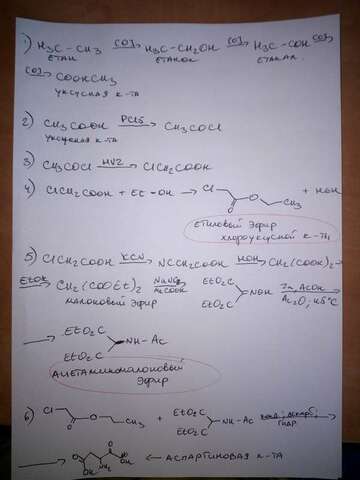 1) H₃C – CH₃ [O]→ H₃C – CH₂OH [O]→ H₃C – COH [O]→
ЕТАН ЕТАНОЛ ЕТАНАЛ
[O]→ COOHCH₃
УКСУСНАЯ К-ТА
2) CH₃COOH PCl5→ CH₃COCl
УКСУСНАЯ К-ТА
3) CH₃COCl HVZ→ ClCH₂COOH
4) ClCH₂COOH + Et – OH → Cl O O CH₃ + HOH
ЕТИЛОВЫЙ ЭФИР
ХЛОРОУКСУСНОЙ К-ТЫ
5) ClCH₂COOH KCN→ NCCH₂COOH HOH→ CH₂(COOH)₂ →
EtOH→ CH₂(COOEt)₂ NaNO₂ AcOOH→ EtO₂C EtO₂C NOH Zn, AcOH Ac₂O, 45°C→
МАЛОНОВЫЙ ЭФИР
→ EtO₂C EtO₂C NH – Ac
АЦЕТАМИНОМАЛОНОВЫЙ
ЭФИР
6) Cl O O CH₃ + EtO₂C EtO₂C NH – Ac ГИДР. →
→ O OH NH₂ O OH ← АСПАРТИНОВАЯ К-ТА